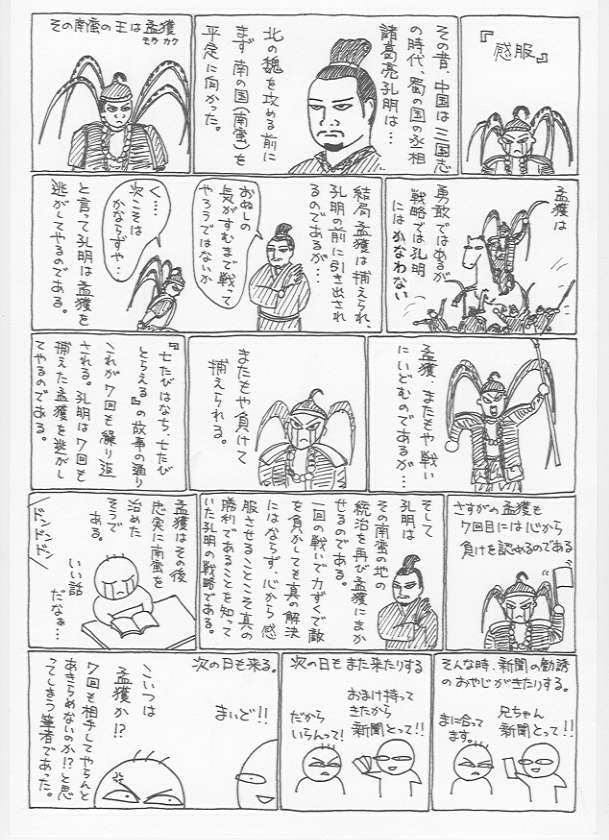 『感服』
その昔、中国は三国志
の時代、蜀の国の丞相
諸葛亮孔明は…
北の魏を攻める前に
まず南の国(南蛮)を
平定に向かった。
その南蛮の王は孟獲
モウ カク
孟獲は
勇敢ではあるが
戦略では孔明
にはかなわない
結局孟獲は捕えられ、
孔明の前に引き出され
るのであるが…
おぬしの
気がすむまで戦って
やろうではないか
く…。
次こそは
かならずや…
と言って孔明は孟獲を
逃がしてやるのである。
孟獲、またもや戦い
にいどむのであるが…
またもや負けて
捕えられる。
『七たびはなち、七たび
とらえる』の故事の通り
これが7回も繰り返
される。孔明は7回も
捕えた孟獲を逃がし
てやるのである。
さすがの孟獲も
7回目には心から
負けを認めるのである
そして
孔明は
その南蛮の地の
統治を再び孟獲にまか
せるのである。
一回の戦いで力ずくで敵
を負かしても真の解決
にはならず、心から感
服させることこそ真の
勝利であることを知って
いた孔明の戦略である。
孟獲はその後
忠実に南蛮を
治めた
そうで
ある。
いい話
だなぁ…
ドンドンドン
そんな時、新聞の勧誘
のおやじがきたりする。
兄ちゃん
新聞とって!!
まに合って
ます。
次の日もまた来たりする
おまけ持って
きたから
新聞とって!!
だから
いらんって!
次の日も来る。
まいど!!
こいつは
孟獲か!?
7回も相手してやらんと
あきらめないのか!?と思
ってしまう筆者であった。